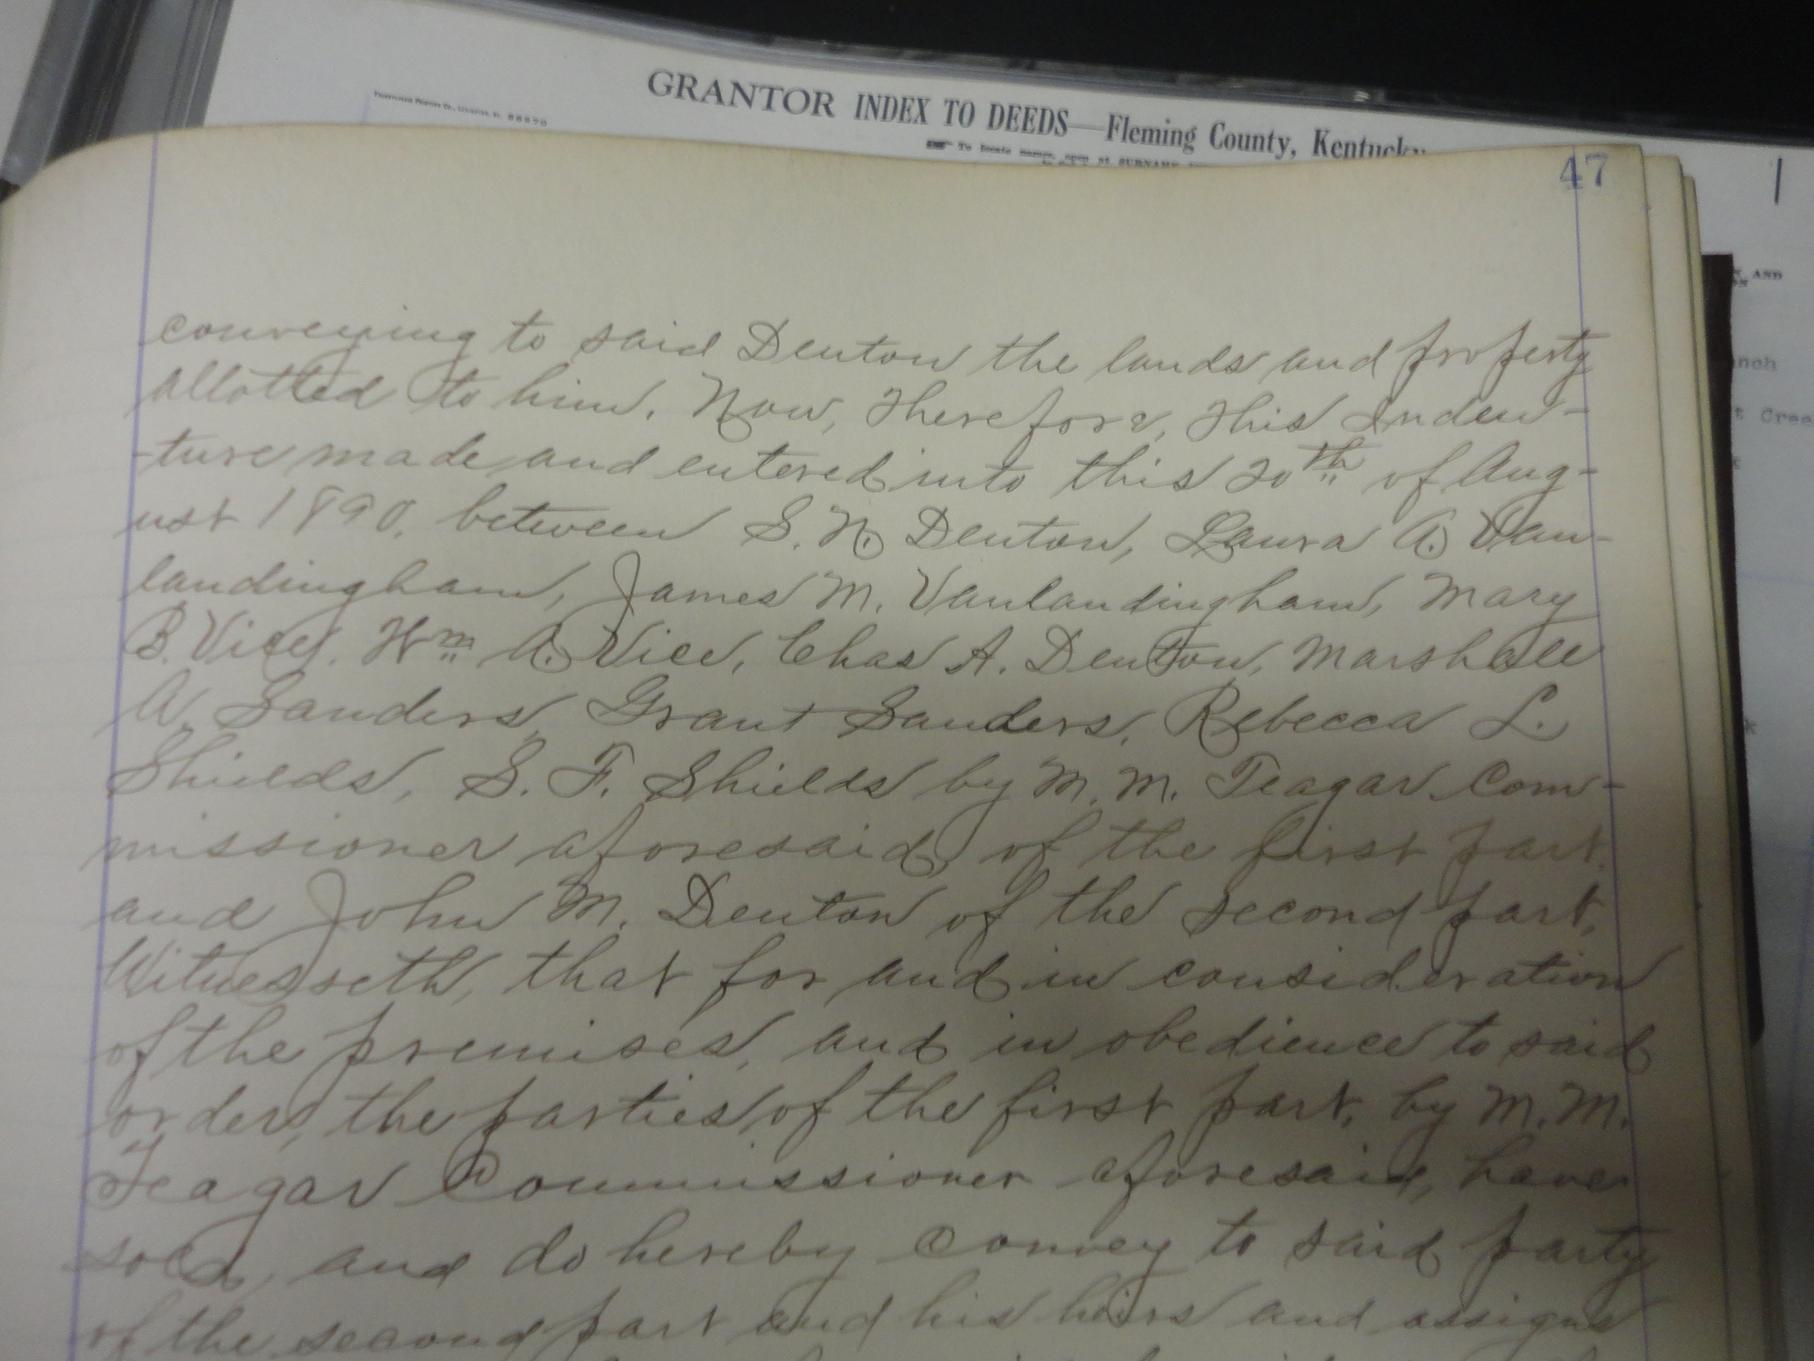 GRANTOR INDEX TO DEEDS—Fleming County, Kentucky
47
AND
nch
t Cree
k
conveying to said Denton the lands and property
allotted to him. Now, Therefore, This Inden-
-ture made and entered into this 20th of Aug-
ust 1890, between S. N. Denton, Laura A. Van-
landingham, James M. Vanlandingham, Mary
B. Vice, Wm A. Vice, Chas A. Denton, Marshall
A. Sanders, Grant Sanders, Rebecca L.
Shields, S. F. Shields by M. M. Teagar Com-
missioner aforesaid, of the first part,
and John M. Denton of the second part,
Witnesseth, that for and in consideration
of the premises, and in obedience to said
order, the parties of the first part, by M. M.
Teagar Commissioner aforesaid, have
sold, and do hereby convey to said party
of the second part and his heirs and assigns